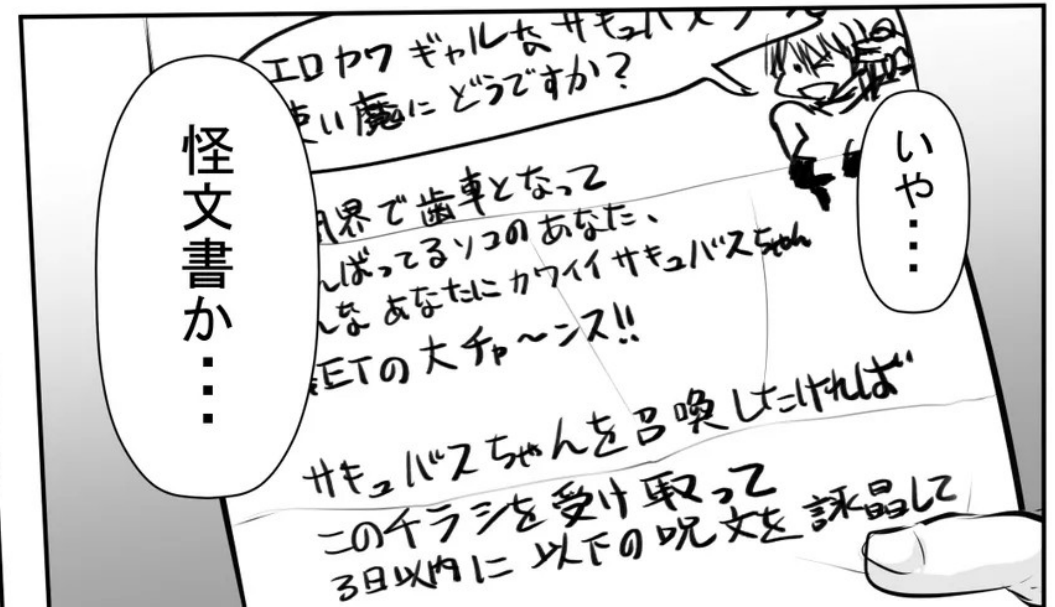 いや・・・
エロカワギャルなサキュバス
い魔にどうですか？
界で歯車となって
んばってるソコのあなた、
なあなたにカワイイサキュバスちゃん
ETの大チャ〜ンス!!
サキュバスちゃんを召喚したければ
このチラシを受け取って
3日以内に以下の呪文を詠晶して
怪文書か・・・